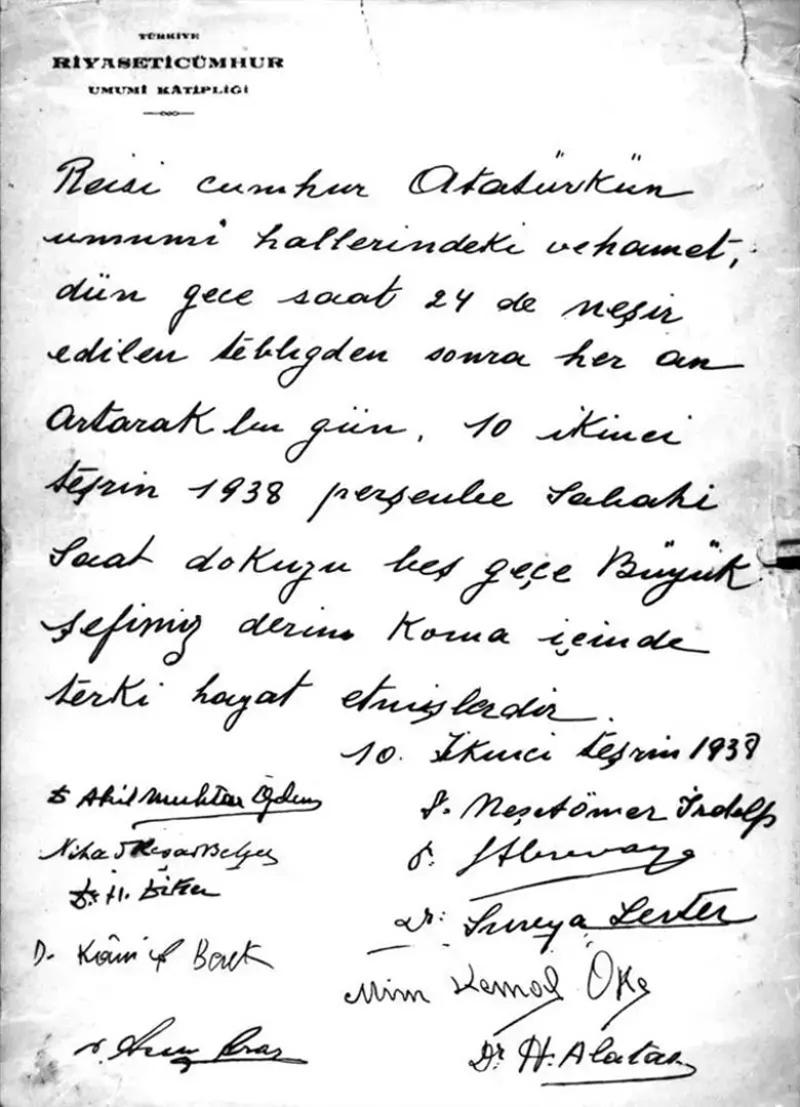 TÜRKİYE
RİYASETİCÜMHUR
UMUMİ KÂTİPLİĞİ
Reisi cumhur Atatürkün
umumî hallerindeki vehamet,
dün gece saat 24 de neşir
edilen tebligden sonra her an
artarak bu gün, 10 ikinci
teşrin 1938 perşenbe sabahi
saat dokuzu beş geçe Büyük
Şefimiz derin koma içinde
terki hayat etmişlerdir.
10. İkinci teşrin 1938
D Akil Muhtar Özden
D. Neşetömer İrdelp
Nihad Reşad Belger
D.
Dr. H. Diker
Dr: Sureya Serter
D. Kâmil Berk
Mim Kemal Öke
Dr. H. Alatas